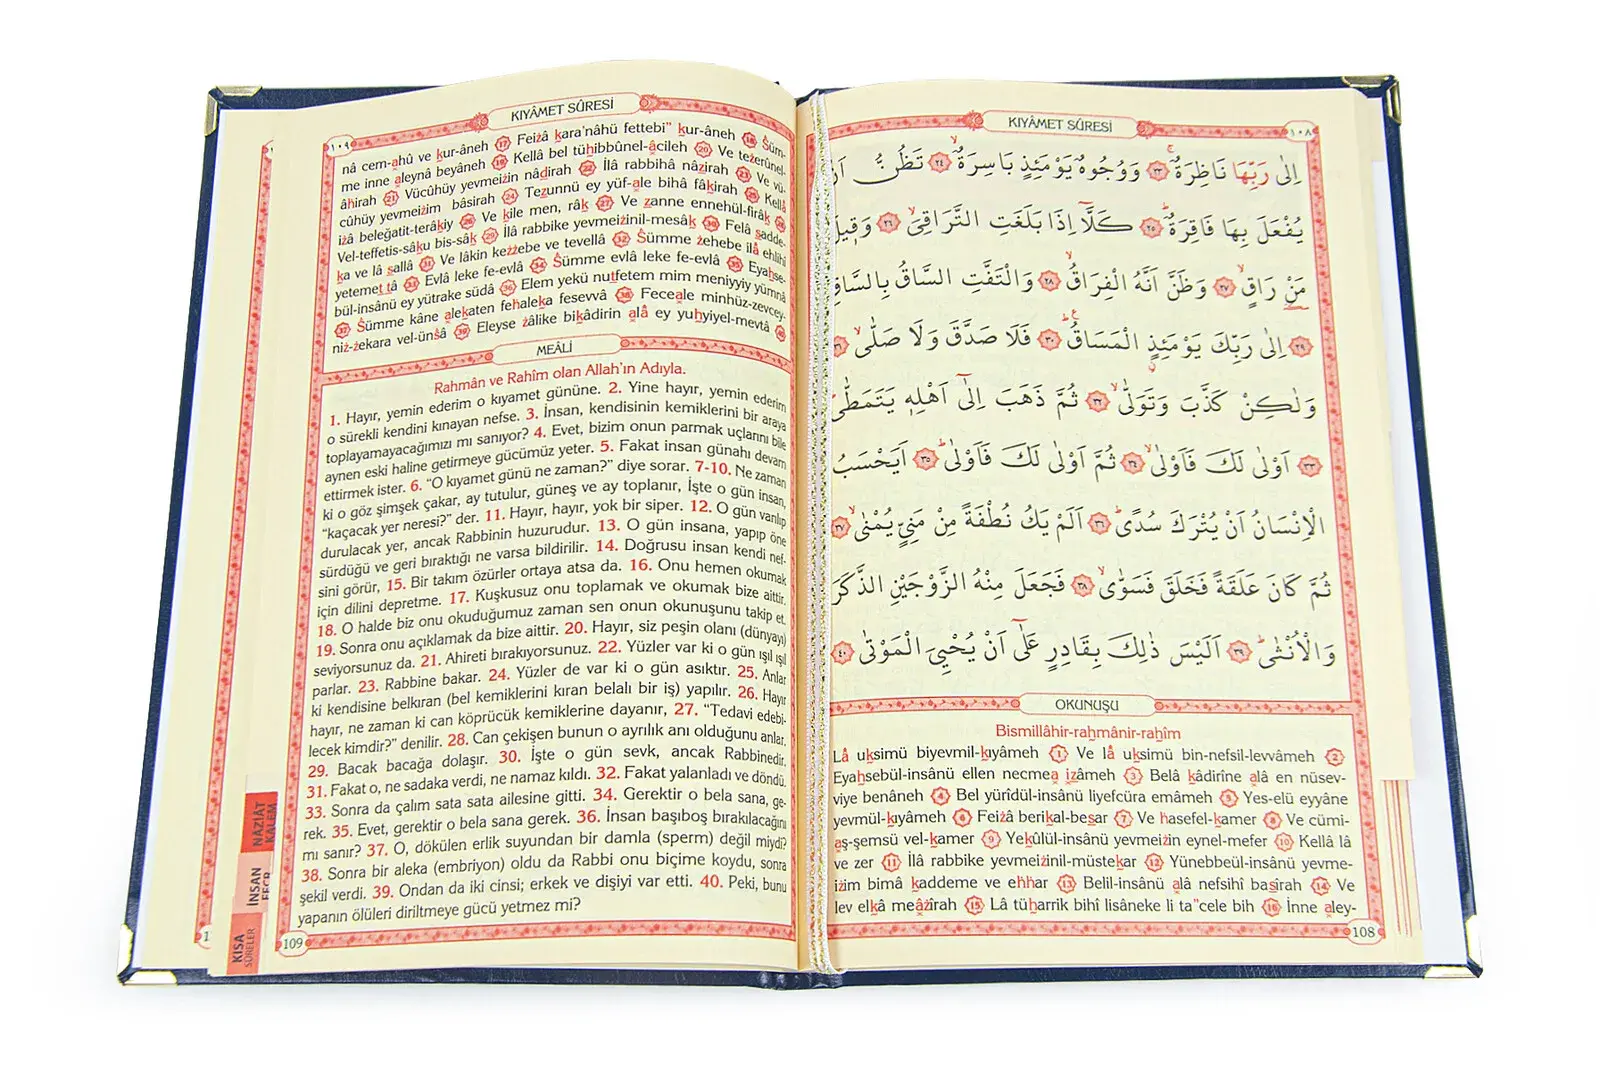 KIYÂMET SÛRESİ
١٠٨
اِلٰى رَبِّهَا نَاظِرَةٌۚ ٢٣ وَوُجُوهٌ يَوْمَئِذٍ بَاسِرَةٌۙ ٢٤ تَظُنُّ اَنْ
يُفْعَلَ بِهَا فَاقِرَةٌۜ ٢٥ كَلَّٓا اِذَا بَلَغَتِ التَّرَاقِيَۙ ٢٦ وَقٖيلَ
مَنْ رَاقٍۙ ٢٧ وَظَنَّ اَنَّهُ الْفِرَاقُۙ ٢٨ وَالْتَفَّتِ السَّاقُ بِالسَّاقِ
٢٩ اِلٰى رَبِّكَ يَوْمَئِذٍ الْمَسَاقُۜ ٣٠ فَلَا صَدَّقَ وَلَا صَلّٰىۙ ٣١
وَلٰكِنْ كَذَّبَ وَتَوَلّٰىۙ ٣٢ ثُمَّ ذَهَبَ اِلٰٓى اَهْلِهٖ يَتَمَطّٰى
٣٣ اَوْلٰى لَكَ فَاَوْلٰىۙ ٣٤ ثُمَّ اَوْلٰى لَكَ فَاَوْلٰىۜ ٣٥ اَيَحْسَبُ
الْاِنْسَانُ اَنْ يُتْرَكَ سُدًىۜ ٣٦ اَلَمْ يَكُ نُطْفَةً مِنْ مَنِيٍّ يُمْنٰىۙ ٣٧
ثُمَّ كَانَ عَلَقَةً فَخَلَقَ فَسَوّٰىۙ ٣٨ فَجَعَلَ مِنْهُ الزَّوْجَيْنِ الذَّكَرَ
وَالْاُنْثٰىۜ ٣٩ اَلَيْسَ ذٰلِكَ بِقَادِرٍ عَلٰٓى اَنْ يُحْيِيَ الْمَوْتٰى ٤٠
OKUNUŞU
Bismillâhir-rahmânir-rahîm
Lâ uksimü biyevmil-kıyâmeh 1 Ve lâ uksimü bin-nefsil-levvâmeh 2
Eyahsebül-insânü ellen necmea izâmeh 3 Belâ kâdirîne alâ en nüsev-
viye benâneh 4 Bel yürîdül-insânü liyefcüra emâmeh 5 Yes-elü eyyâne
yevmül-kıyâmeh 6 Feizâ berikal-besar 7 Ve hasefel-kamer 8 Ve cümi-
aş-şemsü vel-kamer 9 Yekûlül-insânü yevmeizin eynel-mefer 10 Kellâ lâ
ve zer 11 İlâ rabbike yevmeizinil-müstekar 12 Yünebbeül-insânü yevme-
izim bimâ kaddeme ve ehhar 13 Belil-insânü alâ nefsihî basîrah 14 Ve
lev elkâ meâzîrah 15 Lâ tüharrik bihî lisâneke li ta"cele bih 16 İnne aley-
108
١٠٩
KIYÂMET SÛRESİ
nâ cem-ahû ve kur-âneh 17 Feizâ kara'nâhü fettebi" kur-âneh 18 Süm-
me inne aleynâ beyâneh 19 Kellâ bel tühibbûnel-âcileh 20 Ve tezerûnel-
âhirah 21 Vücûhüy yevmeizin nâdirah 22 İlâ rabbihâ nâzirah 23 Ve vü-
cûhüy yevmeizim bâsirah 24 Tezunnü ey yüf-ale bihâ fâkirah 25 Kellâ
izâ beleğatit-terâkiy 26 Ve kîle men, râk 27 Ve zanne ennehül-firâk 28
Vel-teffetis-sâku bis-sâk 29 İlâ rabbike yevmeizinil-mesâk 30 Felâ sadde-
ka ve lâ sallâ 31 Ve lâkin kezzebe ve tevellâ 32 Sümme zehebe ilâ ehlihî
yetemettâ 33 Evlâ leke fe-evlâ 34 Sümme evlâ leke fe-evlâ 35 Eyahse-
bül-insânü ey yütrake südâ 36 Elem yekü nutfetem mim meniyyiy yümnâ
37 Sümme kâne alekaten fehaleka fesevvâ 38 Feceale minhüz-zevcey-
niz-zekara vel-ünsâ 39 Eleyse zâlike bikâdirin alâ ey yuhyiyel-mevtâ 40
MEÂLİ
Rahmân ve Rahîm olan Allah'ın Adıyla.
1. Hayır, yemin ederim o kıyamet gününe. 2. Yine hayır, yemin ederim
o sürekli kendini kınayan nefse. 3. İnsan, kendisinin kemiklerini bir araya
toplayamayacağımızı mı sanıyor? 4. Evet, bizim onun parmak uçlarını bile
aynen eski haline getirmeye gücümüz yeter. 5. Fakat insan günahı devam
ettirmek ister. 6. “O kıyamet günü ne zaman?” diye sorar. 7-10. Ne zaman
ki o göz şimşek çakar, ay tutulur, güneş ve ay toplanır, İşte o gün insan,
“kaçacak yer neresi?” der. 11. Hayır, hayır, yok bir siper. 12. O gün varılıp
durulacak yer, ancak Rabbinin huzurudur. 13. O gün insana, yapıp öne
sürdüğü ve geri bıraktığı ne varsa bildirilir. 14. Doğrusu insan kendi nef-
sini görür, 15. Bir takım özürler ortaya atsa da. 16. Onu hemen okumak
için dilini depretme. 17. Kuşkusuz onu toplamak ve okumak bize aittir.
18. O halde biz onu okuduğumuz zaman sen onun okunuşunu takip et.
19. Sonra onu açıklamak da bize aittir. 20. Hayır, siz peşin olanı (dünyayı)
seviyorsunuz da. 21. Ahireti bırakıyorsunuz. 22. Yüzler var ki o gün ışıl ışıl
parlar. 23. Rabbine bakar. 24. Yüzler de var ki o gün asıktır. 25. Anlar
ki kendisine belkıran (bel kemiklerini kıran belalı bir iş) yapılır. 26. Hayır
hayır, ne zaman ki can köprücük kemiklerine dayanır, 27. “Tedavi edebi-
lecek kimdir?” denilir. 28. Can çekişen bunun o ayrılık anı olduğunu anlar.
29. Bacak bacağa dolaşır. 30. İşte o gün sevk, ancak Rabbinedir.
31. Fakat o, ne sadaka verdi, ne namaz kıldı. 32. Fakat yalanladı ve döndü.
33. Sonra da çalım sata sata ailesine gitti. 34. Gerektir o bela sana, ge-
rek. 35. Evet, gerektir o bela sana gerek. 36. İnsan başıboş bırakılacağını
mı sanır? 37. O, dökülen erlik suyundan bir damla (sperm) değil miydi?
38. Sonra bir aleka (embriyon) oldu da Rabbi onu biçime koydu, sonra
şekil verdi. 39. Ondan da iki cinsi; erkek ve dişiyi var etti. 40. Peki, bunu
yapanın ölüleri diriltmeye gücü yetmez mi?
109
NÂZİÂT
KALEM
İNSAN
KISA
SÛRELER